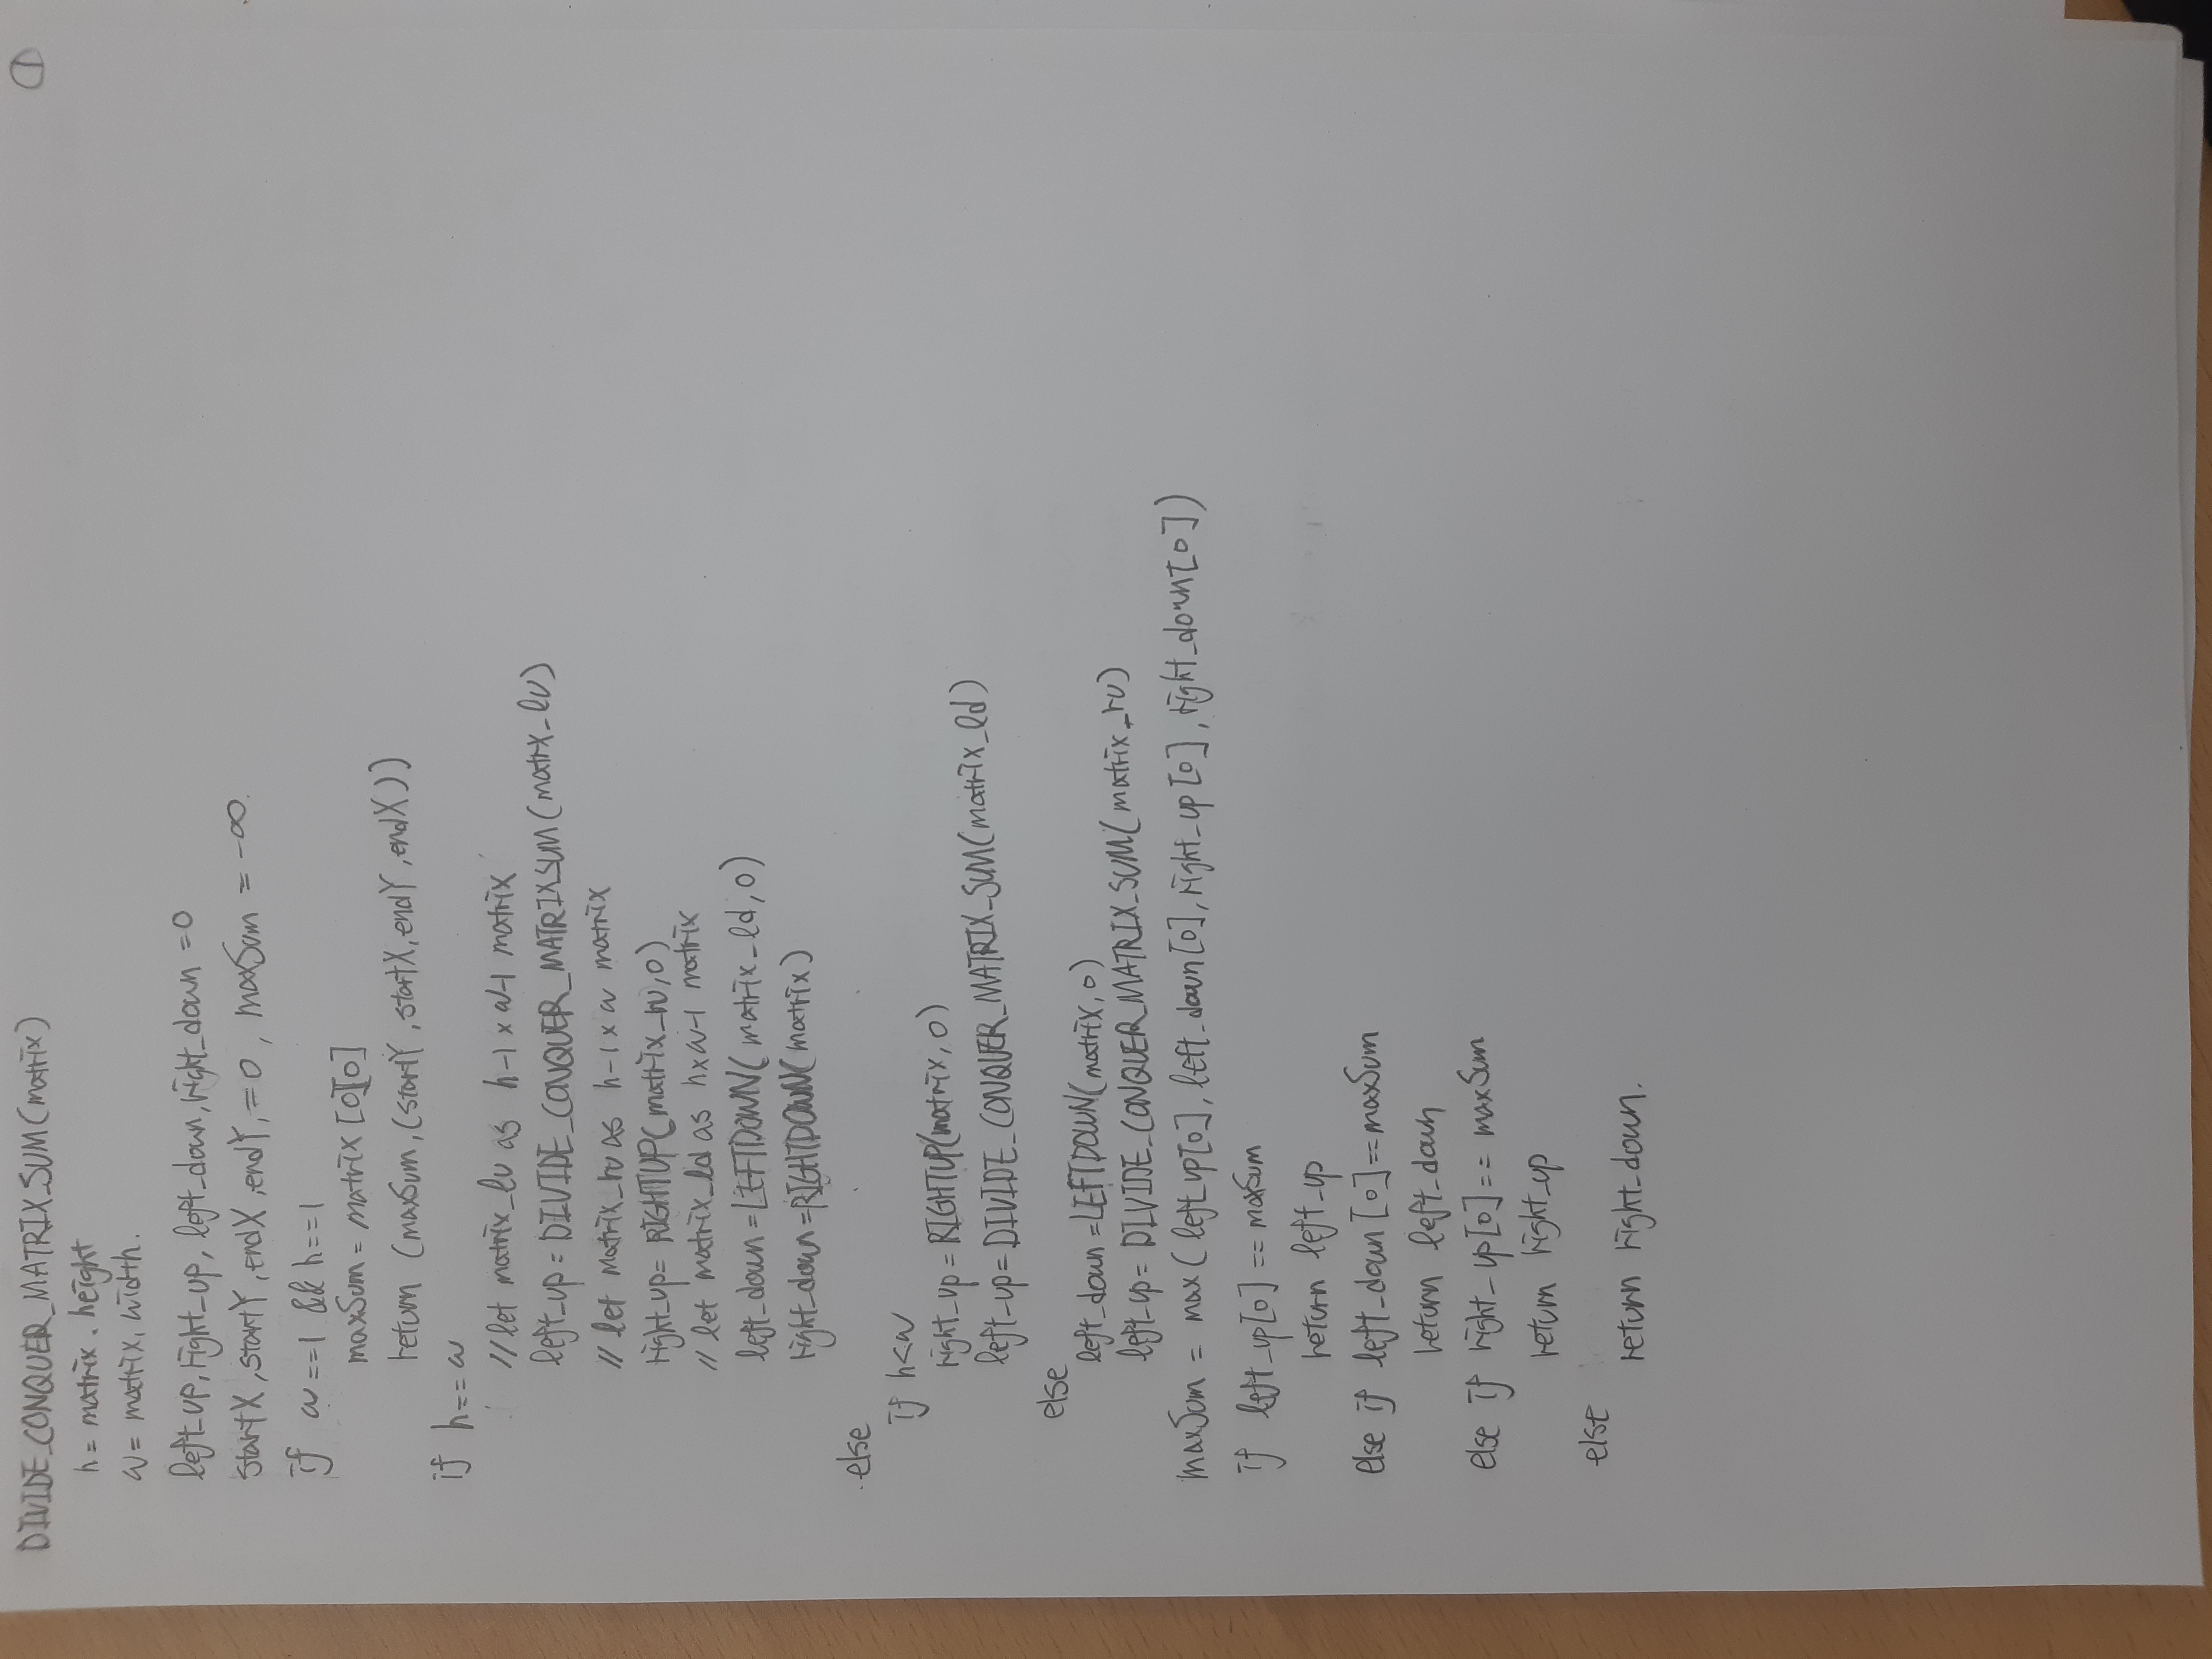 DIVIDE_CONQUER_MATRIX_SUM(matrix) ①
h = matrix.height
w = matrix.width.
left_up, right_up, left_down, right_down = 0
startX, startY, endX, endY, = 0, maxSum = -∞.
if w==1 && h==1
maxSum = matrix[0][0]
return (maxSum, (startY, startX, endY, endX))
if h==w
//let matrix_lu as h-1 x w-1 matrix
left_up = DIVIDE_CONQUER_MATRIXSUM(matrx_lu)
// let matrix_ru as h-1 x w matrix
right_up = RIGHTUP(matrix_ru, 0)
// let matrix_ld as h x w-1 matrix
left_down = LEFTDOWN(matrix_ld, 0)
right_down = RIGHTDOWN(matrix)
else
if h<w
right_up = RIGHTUP(matrix, 0)
left_up = DIVIDE_CONQUER_MATRIX_SUM(matrix_ld)
else
left_down = LEFTDOWN(matrix, 0)
left_up = DIVIDE_CONQUER_MATRIX_SUM(matrix_ru)
maxSum = max(left_up[0], left_down[0], right_up[0], right_down[0])
if left_up[0] == maxSum
return left_up
else if left_down[0] == maxSum
return left_down
else if right_up[0] == maxSum
return right_up
else
return right_down.